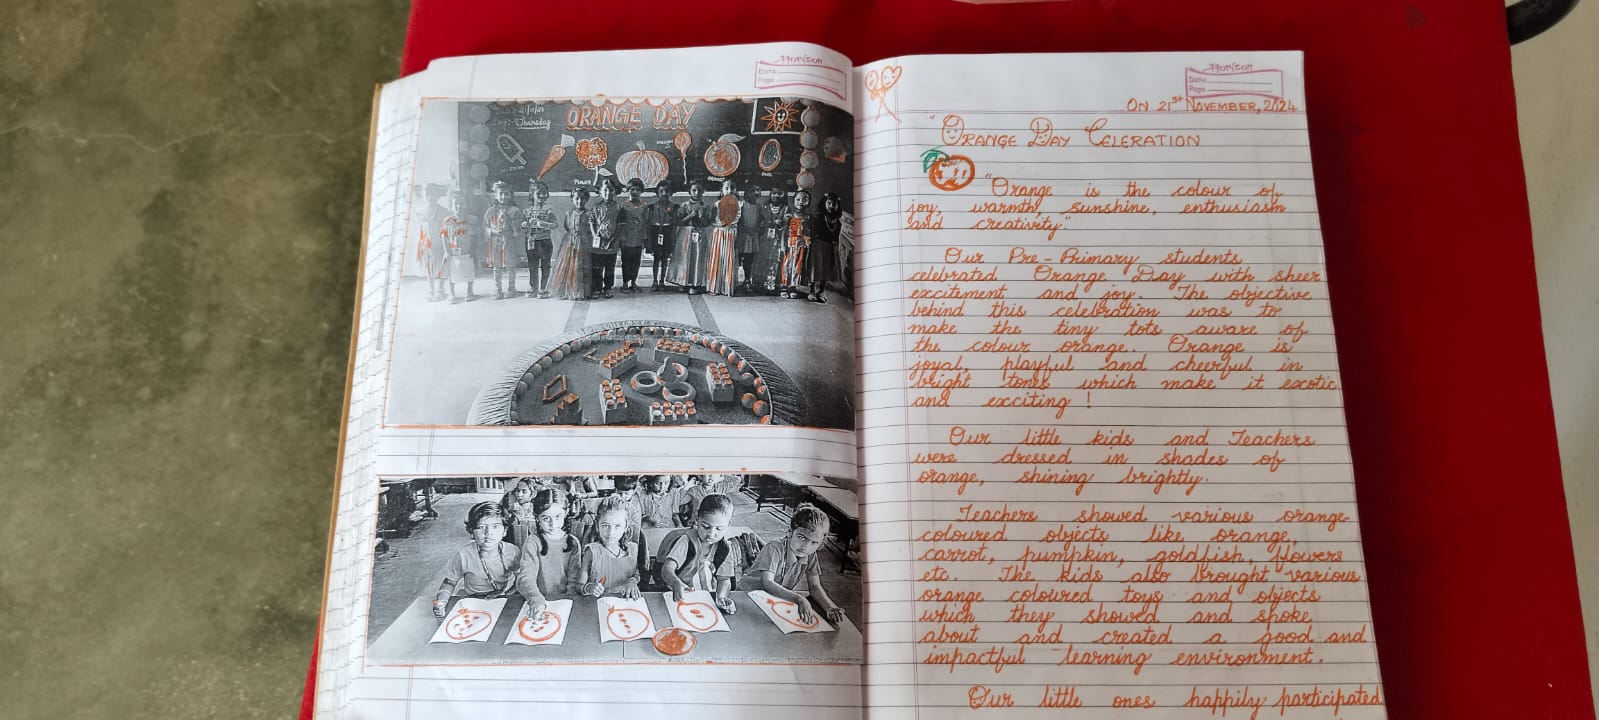 Horizon
Date
Page
ORANGE DAY
Thursday
Horizon
Date
Page
ON 21st NOVEMBER, 2024
"ORANGE DAY CELERATION
"Orange is the colour of
joy, warmth, sunshine, enthusiasm
and creativity."
Our Pre-Primary students
celebrated Orange Day with sheer
excitement and joy. The objective
behind this celebration was to
make the tiny tots aware of
the colour orange. Orange is
joyal, playful and cheerful in
bright tones which make it exotic
and exciting !
Our little kids and Teachers
were dressed in shades of
orange, shining brightly.
Teachers showed various orange-
coloured objects like orange,
carrot, pumpkin, goldfish, flowers
etc. The kids also brought various
orange coloured toys and objects
which they showed and spoke
about and created a good and
impactful learning environment.
Our little ones happily participated